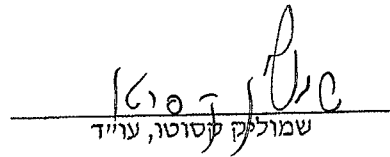 שמוליק קסוטו, עו״ד